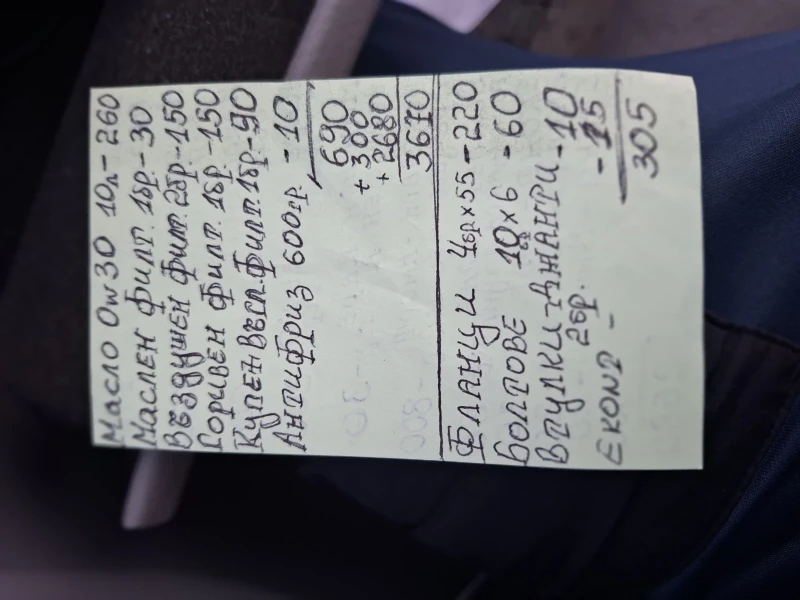 Масло 0w30 10л - 260
Маслен филт. 1бр - 30
Въздушен филт. 2бр - 150
Горивен филт. 1бр - 150
Купен. Въгл. филт. 1бр - 90
Антифриз 600гр. - 10
690
+ 300
+ 2680
3670
Фланци 4бр x 55 - 220
Болтове 10бр x 6 - 60
Втулки - Джанти - 10
2бр.
Еконт - - 15
305